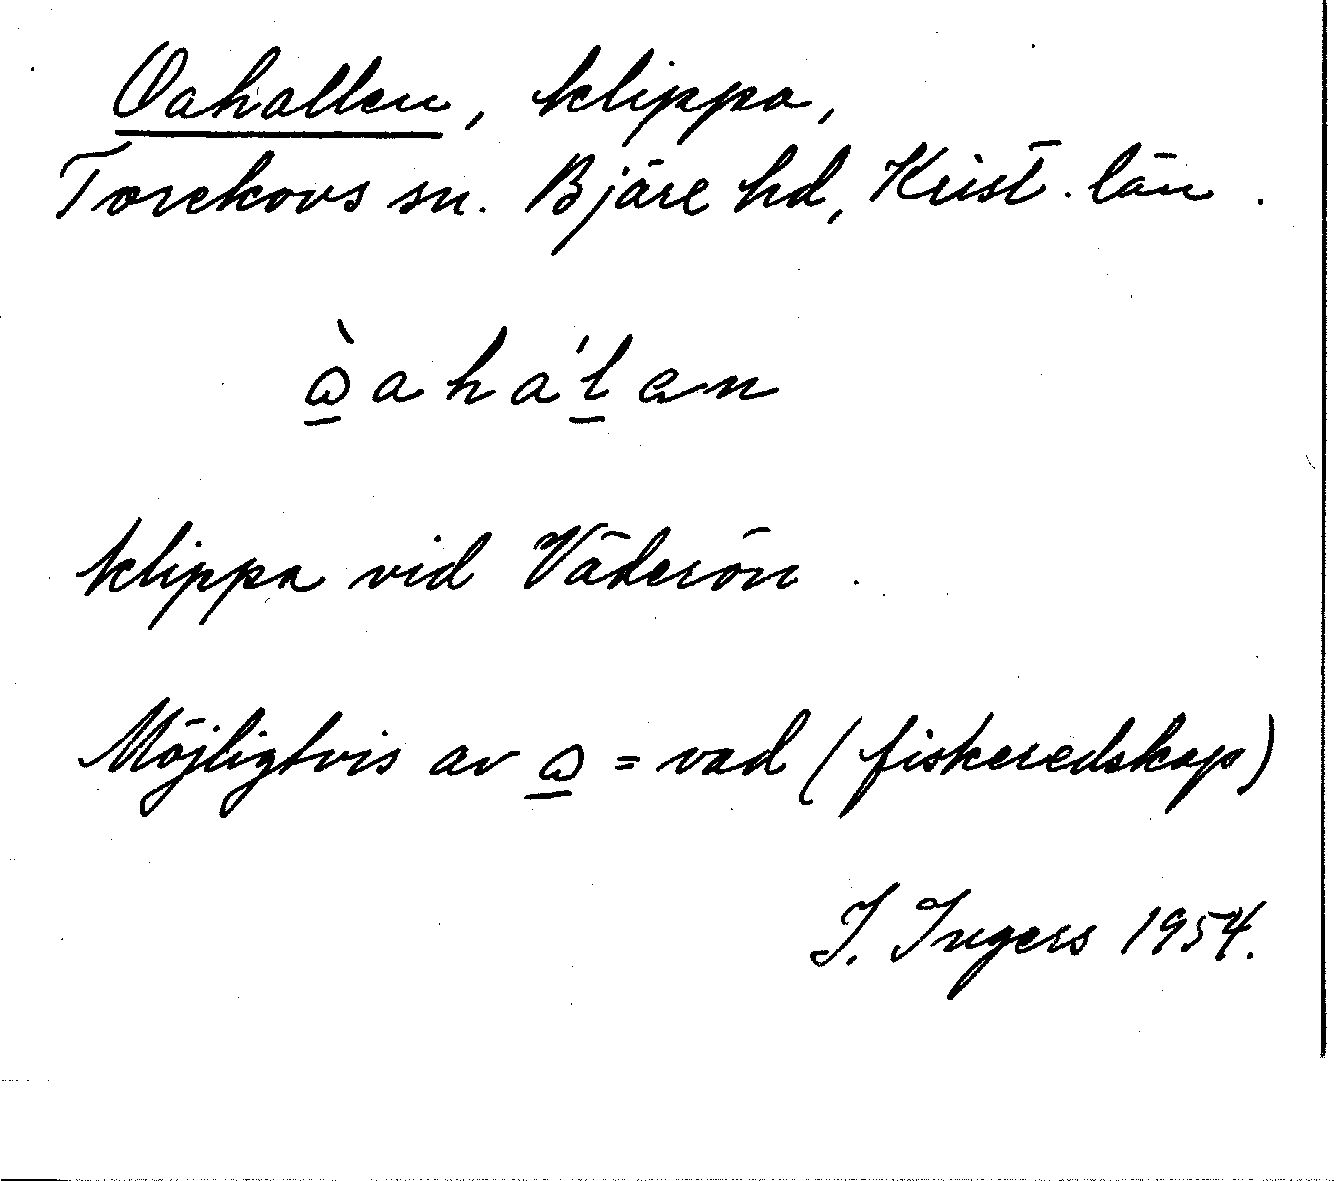 Oahallen, klippa,
Torekovs sn. Bjäre hd, Krist. län.
klippa vid Väderön.
Möjligtvis av ɷ = vad (fiskeredskap)
I. Ingers 1954.